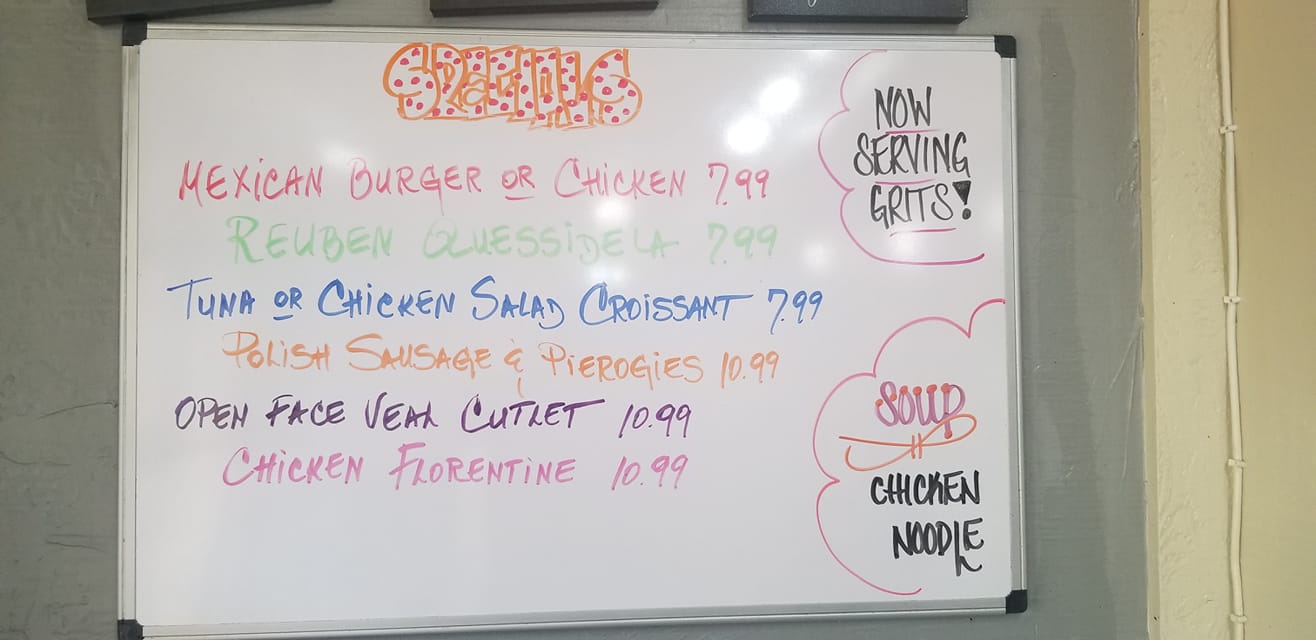 SPECIALS
MEXICAN BURGER OR CHICKEN 7.99
REUBEN QUESSIDELA 7.99
TUNA OR CHICKEN SALAD CROISSANT 7.99
POLISH SAUSAGE & PIEROGIES 10.99
OPEN FACE VEAL CUTLET 10.99
CHICKEN FLORENTINE 10.99
NOW
SERVING
GRITS!
SOUP
CHICKEN
NOODLE